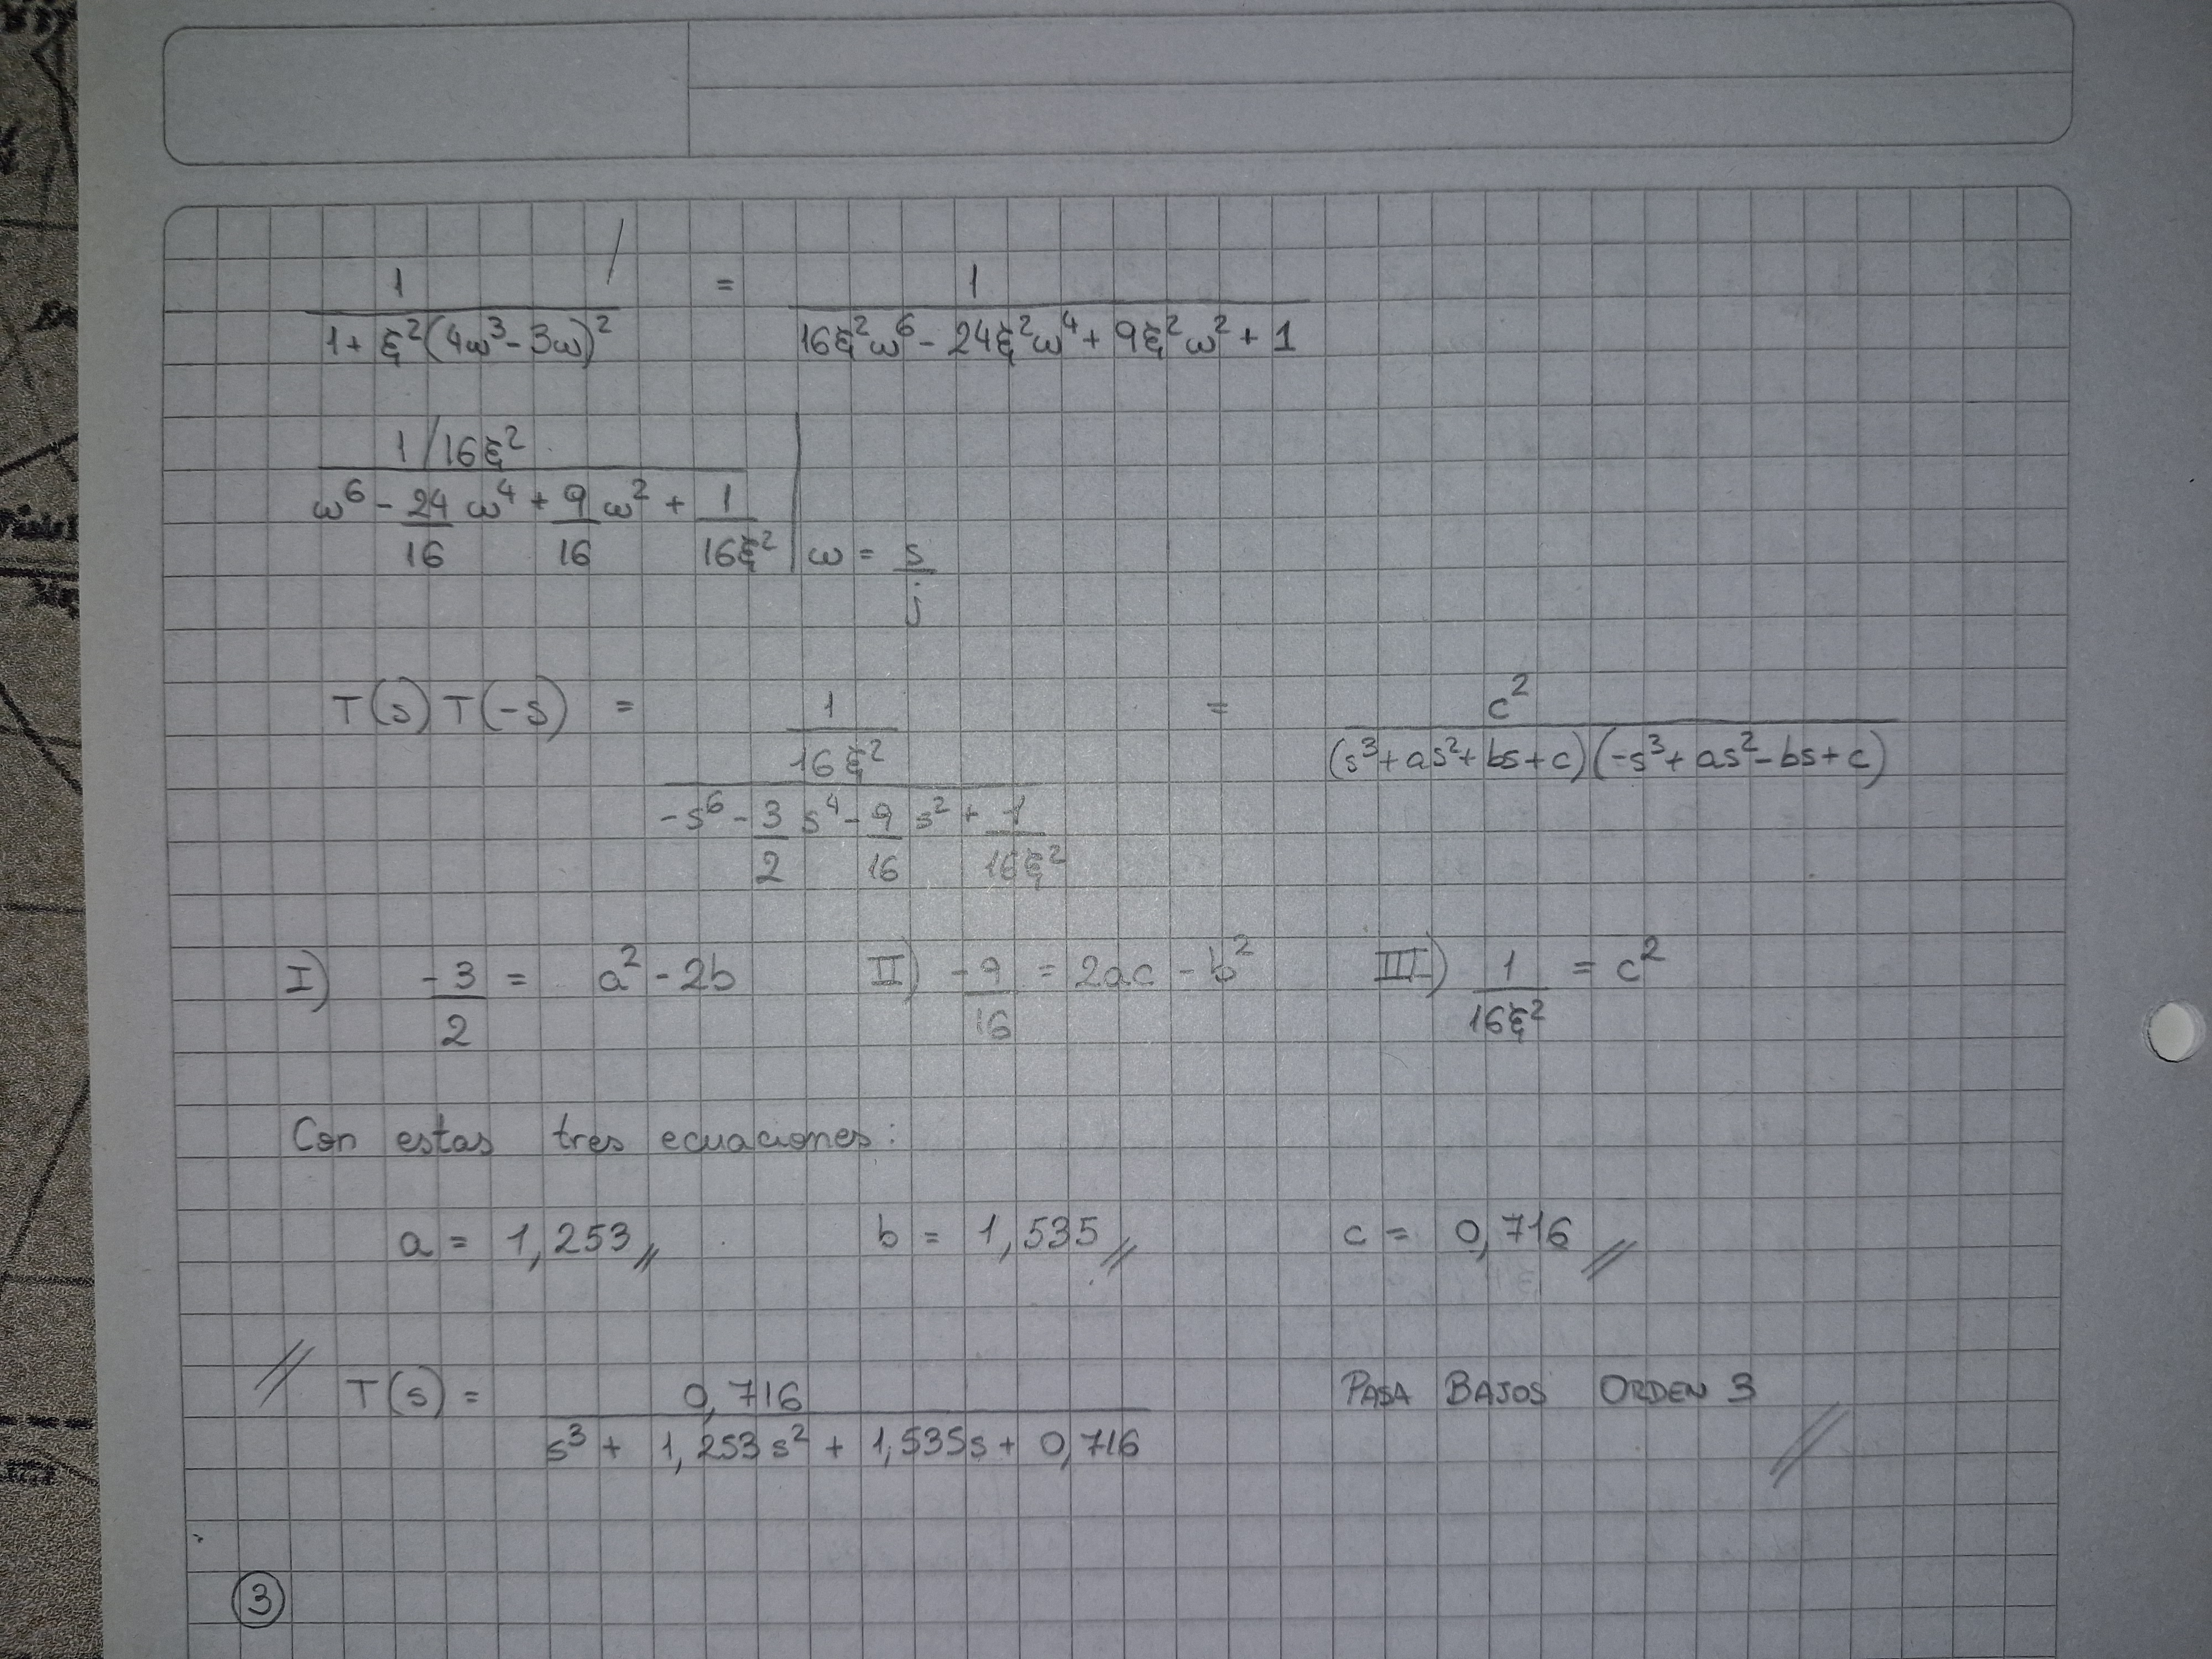 1 / (1 + ξ²(4ω³ - 3ω)²) = 1 / (16ξ²ω⁶ - 24ξ²ω⁴ + 9ξ²ω² + 1)
(1/16ξ²) / (ω⁶ - 24/16 ω⁴ + 9/16 ω² + 1/16ξ²) | ω = s/j
T(s) T(-s) = (1/16ξ²) / (-s⁶ - 3/2 s⁴ - 9/16 s² + 1/16ξ²) = c² / ((s³ + as² + bs + c)(-s³ + as² - bs + c))
I) -3/2 = a² - 2b II) -9/16 = 2ac - b² III) 1/16ξ² = c²
Con estas tres ecuaciones:
a = 1,253 b = 1,535 c = 0,716
T(s) = 0,716 / (s³ + 1,253s² + 1,535s + 0,716) PASA BAJOS ORDEN 3
3